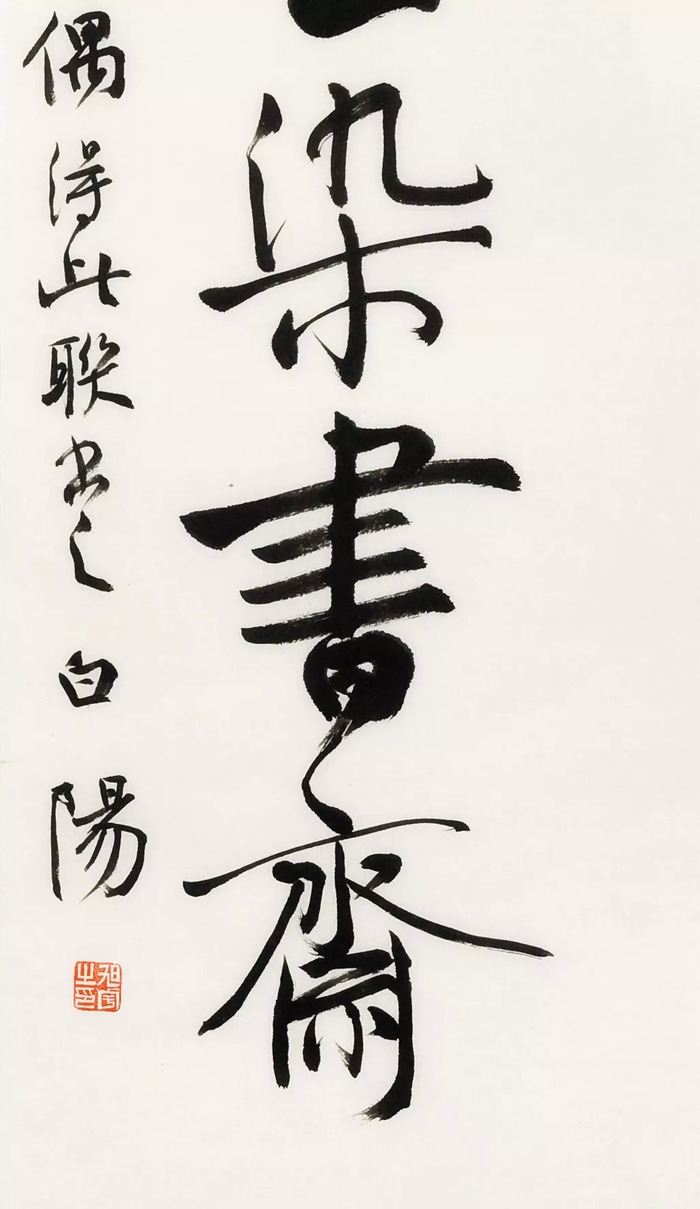 染書齋
偶得此聯書之 白陽